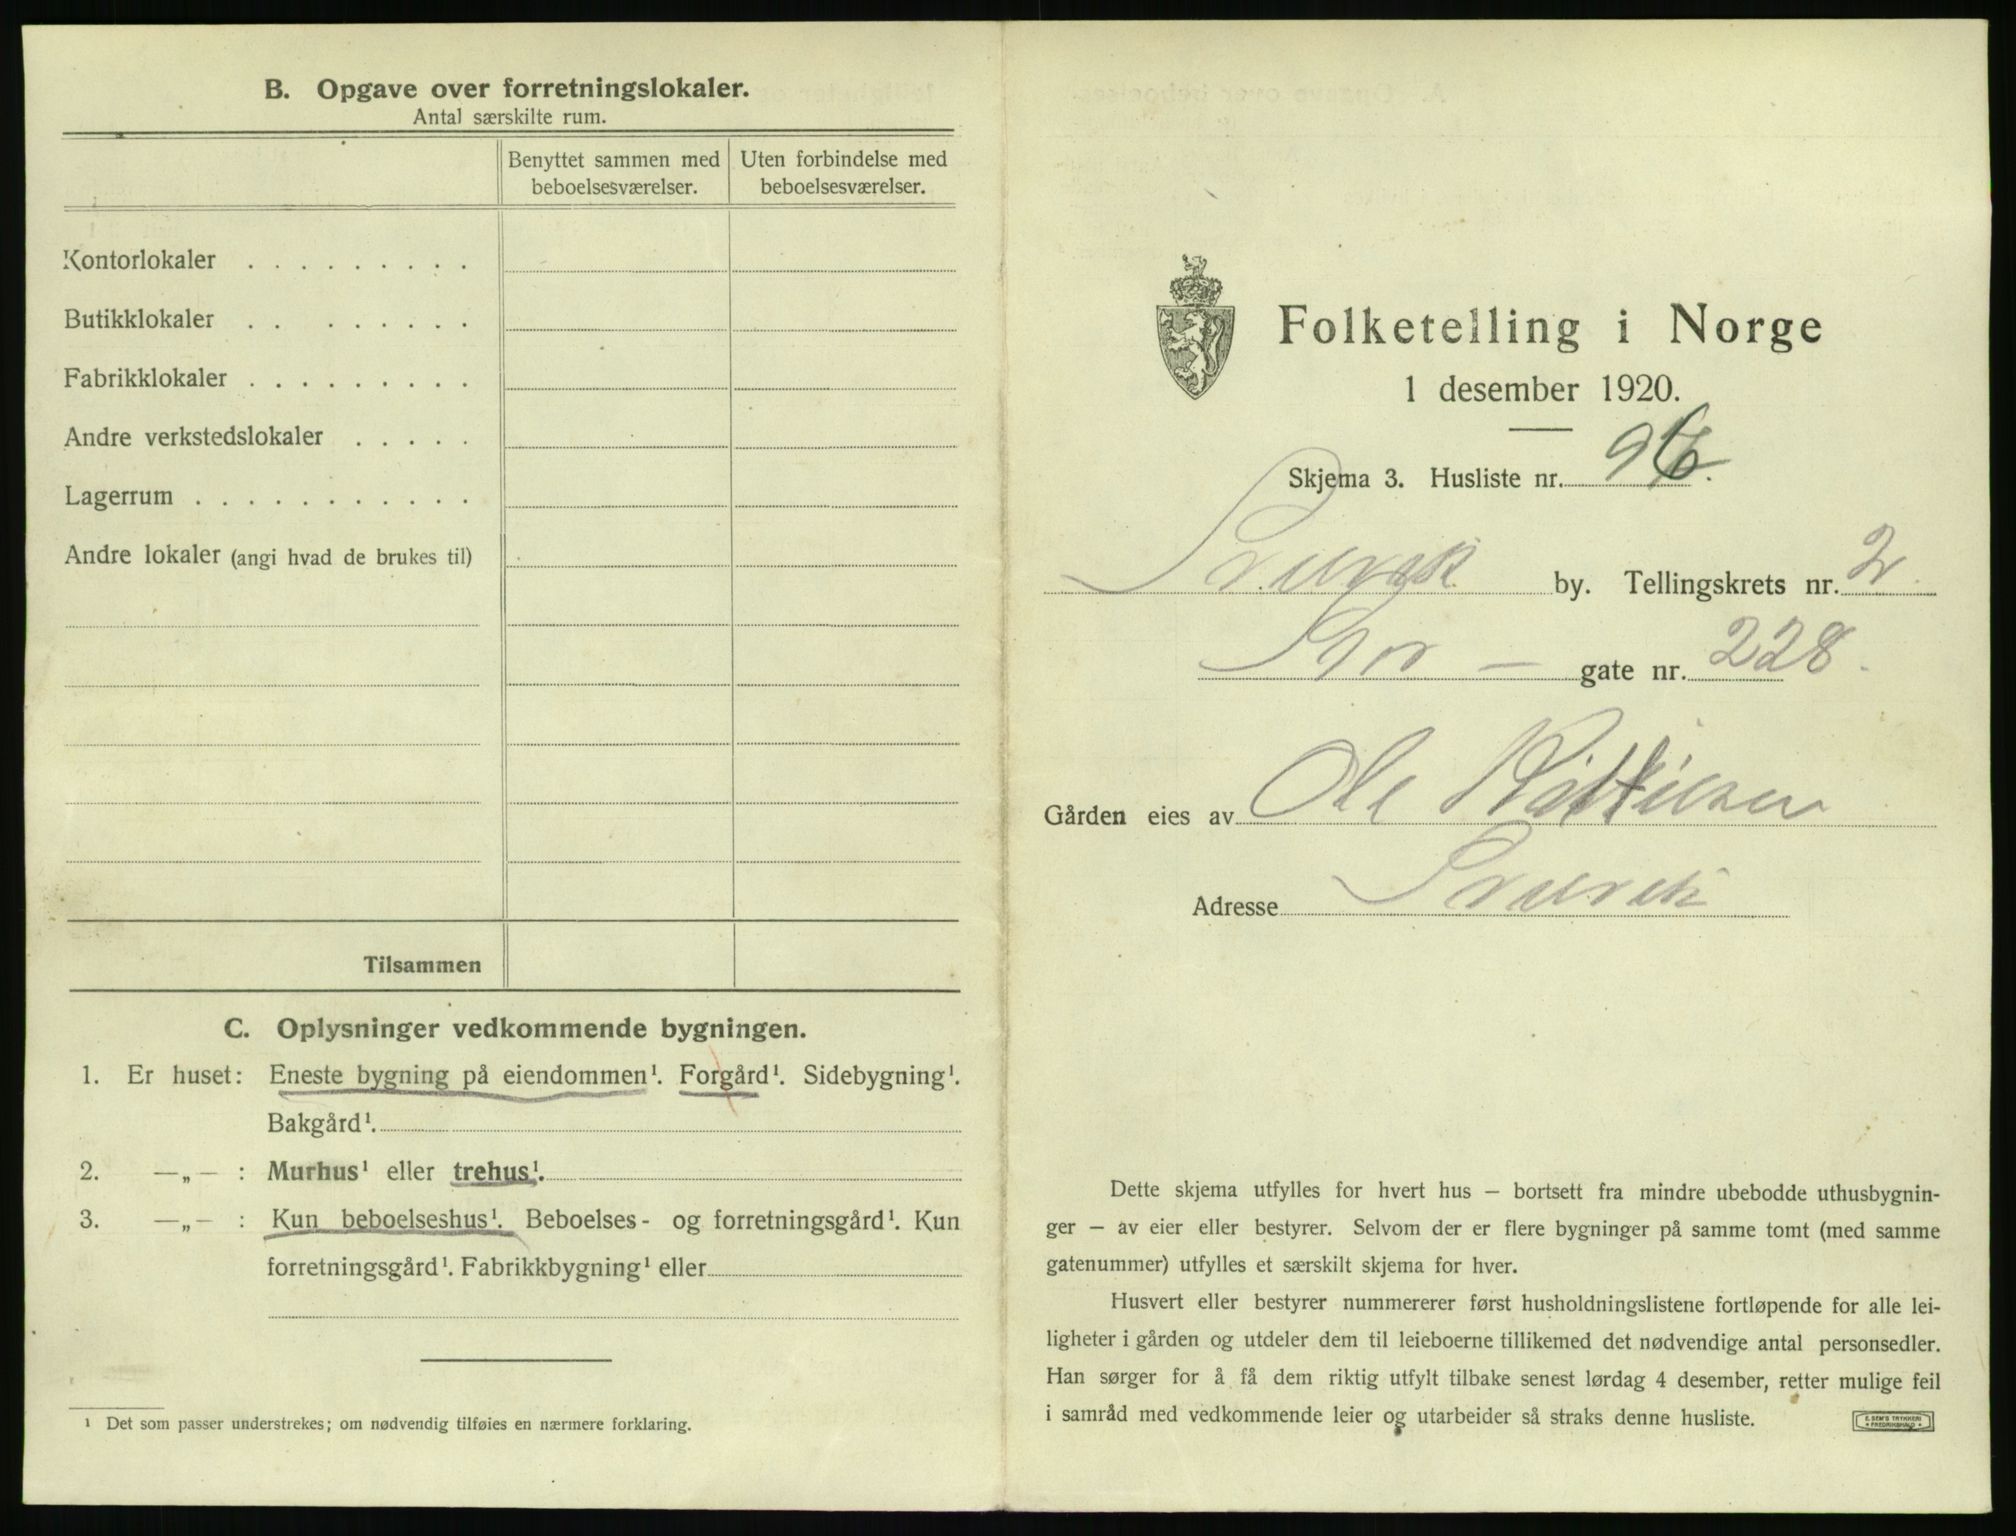 B. Opgave over forretningslokaler.
Antal særskilte rum.
Benyttet sammen med beboelsesværelser.
Uten forbindelse med beboelsesværelser.
Kontorlokaler . . . . . . . . .
Butikklokaler . . . . . . . .
Fabrikklokaler . . . . . . . . .
Andre verkstedslokaler . . . . .
Lagerrum . . . . . . . . . . .
Andre lokaler (angi hvad de brukes til)
Tilsammen
C. Oplysninger vedkommende bygningen.
1. Er huset: Eneste bygning på eiendommen¹. Forgård¹. Sidebygning¹.
Bakgård¹.
2. —„— : Murhus¹ eller trehus¹.
3. —„— : Kun beboelseshus¹. Beboelses- og forretningsgård¹. Kun
forretningsgård¹. Fabrikkbygning¹ eller
¹ Det som passer understrekes; om nødvendig tilføies en nærmere forklaring.
Folketelling i Norge
1 desember 1920.
Skjema 3. Husliste nr. 96.
Svelvik by. Tellingskrets nr. 2.
Stor — gate nr. 228.
Gården eies av Ole Kittilsen
Adresse Svelvik
Dette skjema utfylles for hvert hus — bortsett fra mindre ubebodde uthusbygnin-
ger — av eier eller bestyrer. Selvom der er flere bygninger på samme tomt (med samme
gatenummer) utfylles et særskilt skjema for hver.
Husvert eller bestyrer nummererer først husholdningslistene fortløpende for alle lei-
ligheter i gården og utdeler dem til leieboerne tillikemed det nødvendige antal personsedler.
Han sørger for å få dem riktig utfylt tilbake senest lørdag 4 desember, retter mulige feil
i samråd med vedkommende leier og utarbeider så straks denne husliste.
E. SEM'S TRYKKERI
FREDRIKSHALD